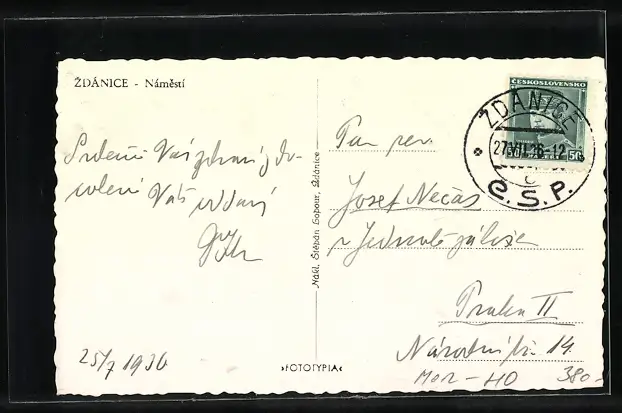 ŽDÁNICE - Náměstí
ČESKOSLOVENSKO
ŽDÁNICE
27.VII.36-12
Č.S.P.
50
Srdečně Vás zdraví z do-
volené Váš oddaný
Pan rev.
Josef Nečas
v Jednotě záložen
Praha II
Národní tř. 14.
25/7 1936
Nákl. Štěpán Gabour, Ždánice
»FOTOTYPIA«
MOR-HO 380-